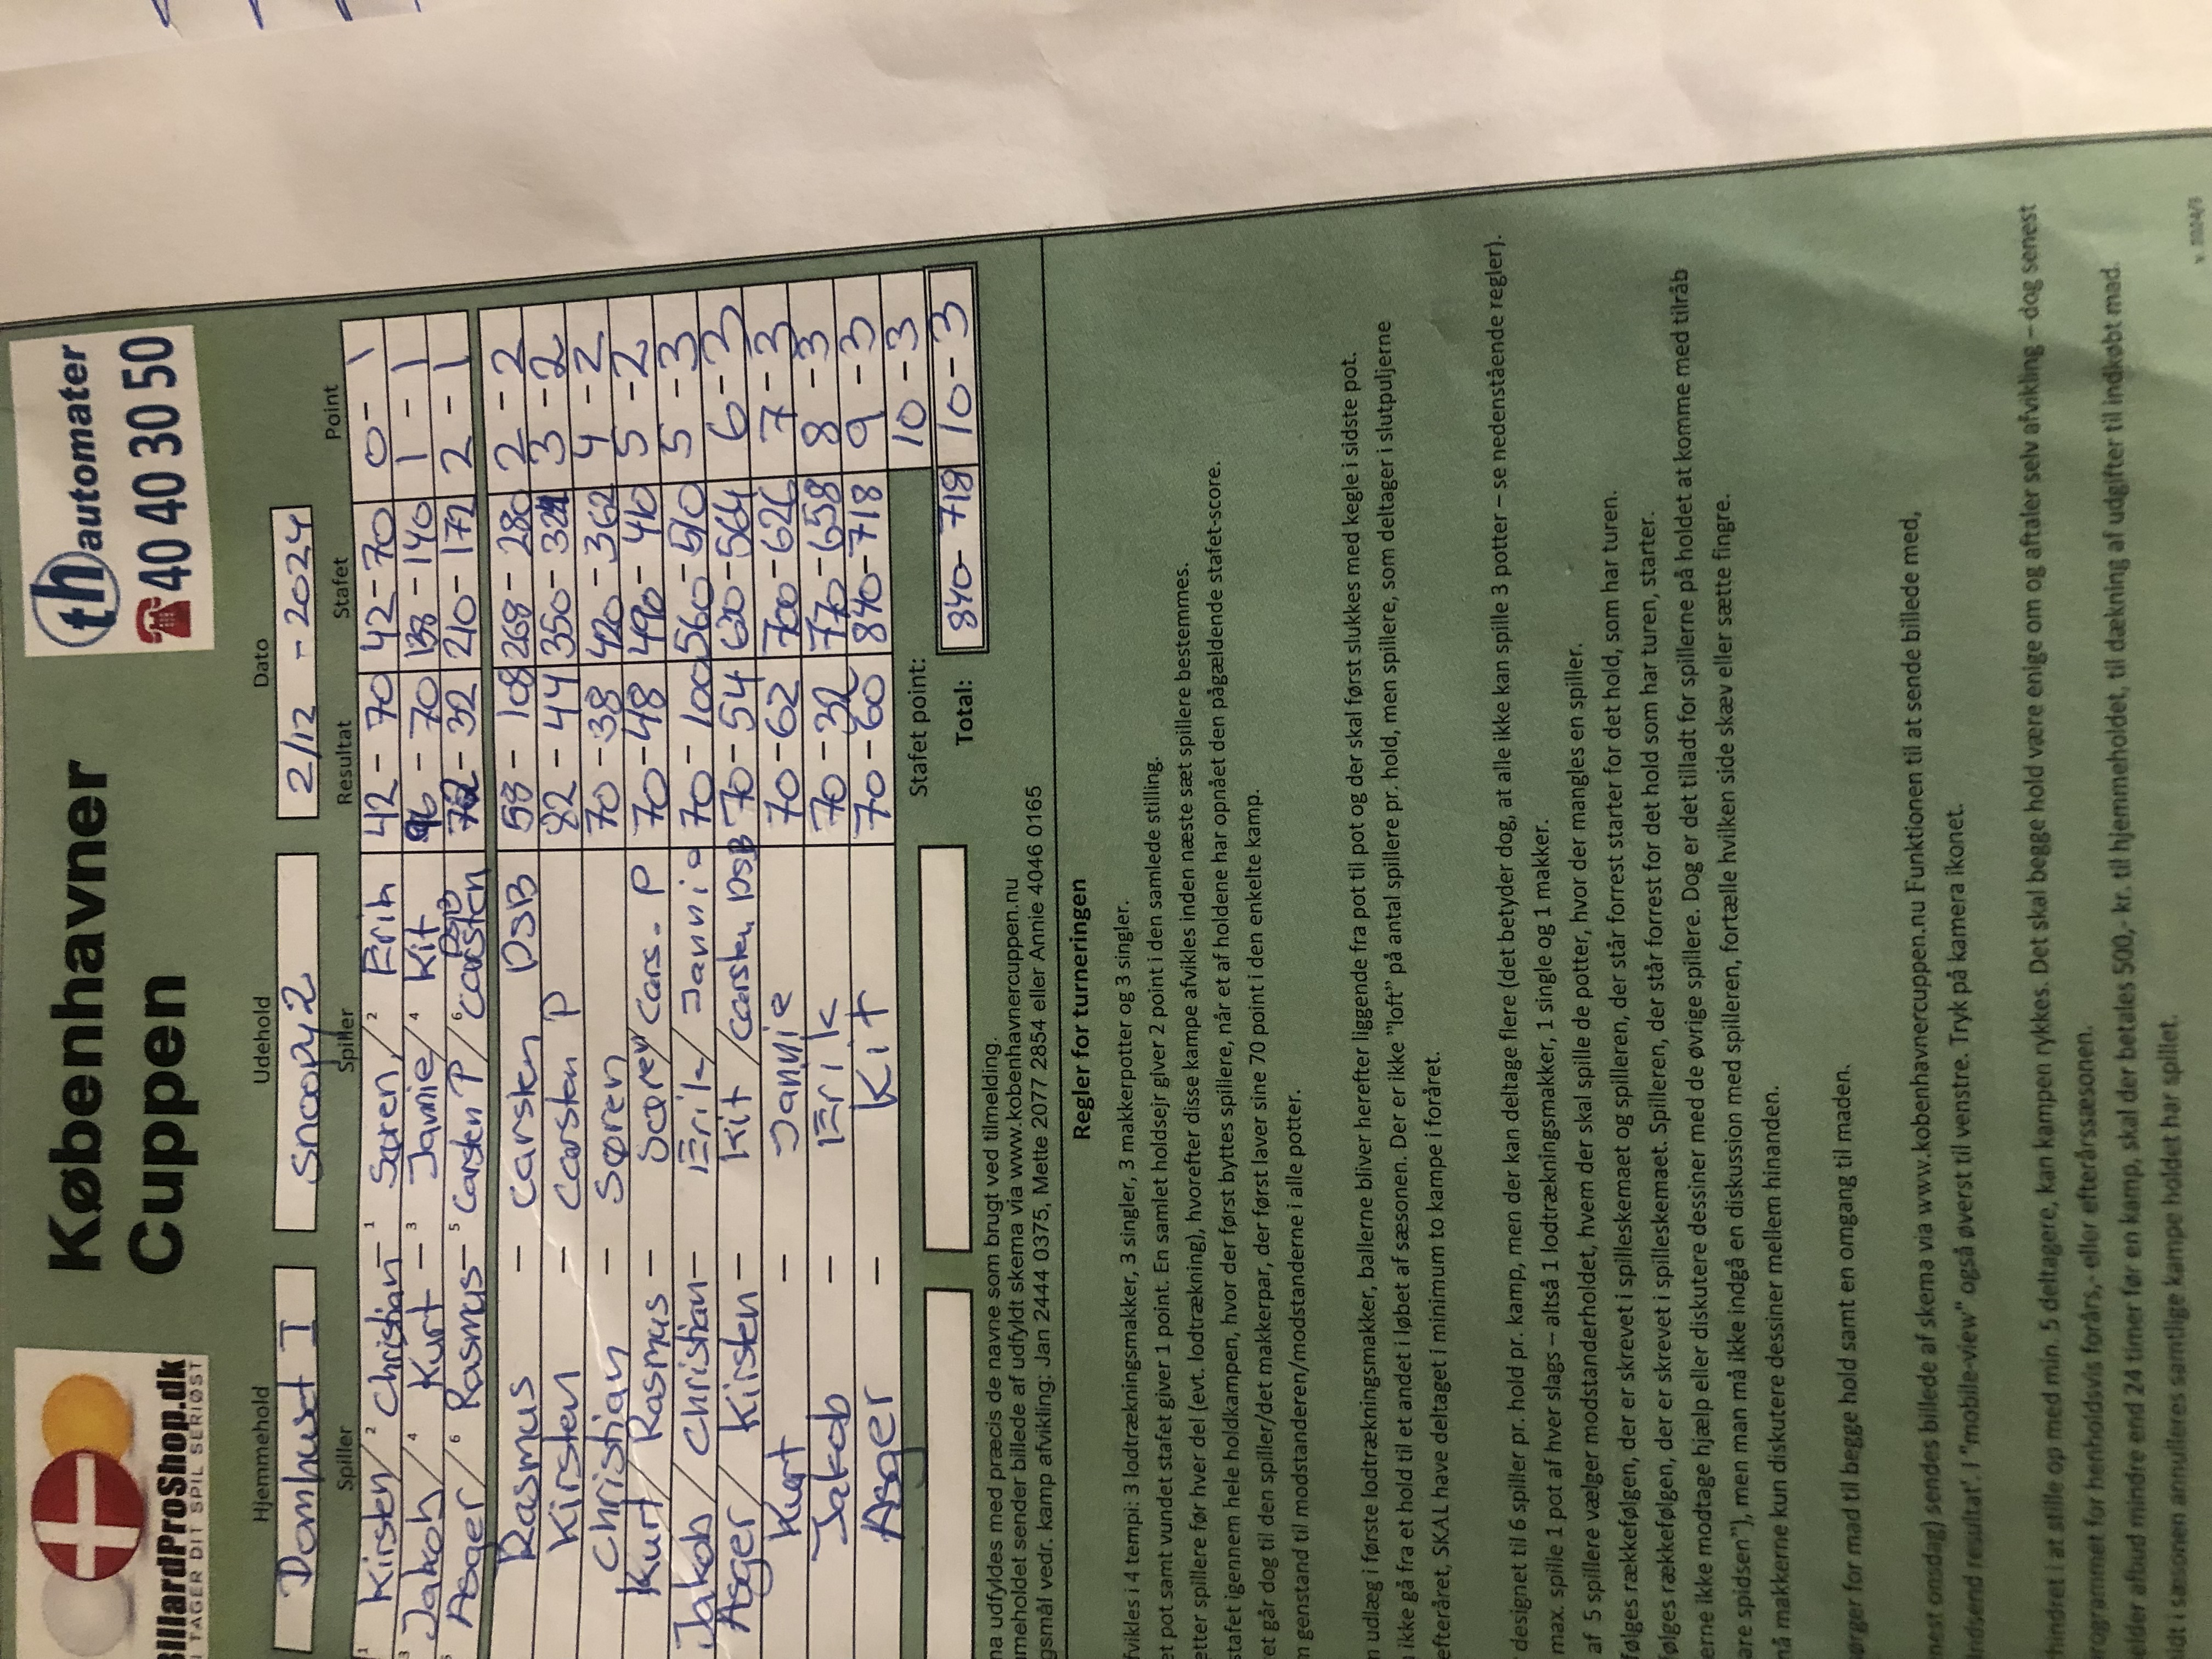 BillardProShop.dk
TAGER DIT SPIL SERIØST
Københavner
Cuppen
th automater
☎40 40 30 50
Hjemmehold
Udehold
Dato
Domhuset I
Snoopy2
2/12 - 2024
Spiller
Spiller
Resultat
Stafet
Point
1 Kirsten / 2 Christian - 1 Søren / 2 Erik 42 - 70 42 - 70 0 - 1
3 Jakob / 4 Kurt - 3 Jannie / 4 Kit 96 - 70 138 - 140 1 - 1
Asger / 6 Rasmus - 5 Carsten P / 6 Carsten DSB 72 - 32 210 - 172 2 - 1
Rasmus - Carsten DSB 58 - 108 268 - 280 2 - 2
Kirsten - Carsten P 82 - 44 350 - 324 3 - 2
Christian - Søren 70 - 38 420 - 362 4 - 2
Kurt / Rasmus - Søren / Cars. P 70 - 48 490 - 410 5 - 2
Jakob / Christian - Erik / Jannie 70 - 100 560 - 510 5 - 3
Asger / Kirsten - Kit / Carsten DSB 70 - 54 630 - 564 6 - 3
Kurt - Jannie 70 - 62 700 - 626 7 - 3
Jakob - Erik 70 - 32 770 - 658 8 - 3
Asger - Kit 70 - 60 840 - 718 9 - 3
Stafet point: 10 - 3
Total: 840 - 718 10 - 3
na udfyldes med præcis de navne som brugt ved tilmelding.
mmeholdet sender billede af udfyldt skema via www.københavnercuppen.nu
gsmål vedr. kamp afvikling: Jan 2444 0375, Mette 2077 2854 eller Annie 4046 0165
Regler for turneringen
fvikles i 4 tempi: 3 lodtrækningsmakker, 3 singler, 3 makkerpotter og 3 singler.
et pot samt vundet stafet giver 1 point. En samlet holdsejr giver 2 point i den samlede stilling.
etter spillere før hver del (evt. lodtrækning), hvorefter disse kampe afvikles inden næste sæt spillere bestemmes.
stafet igennem hele holdkampen, hvor der først byttes spillere, når et af holdene har opnået den pågældende stafet-score.
et går dog til den spiller/det makkerpar, der først laver sine 70 point i den enkelte kamp.
n genstand til modstanderen/modstanderne i alle potter.
n udlæg i første lodtrækningsmakker, ballerne bliver herefter liggende fra pot til pot og der skal først slukes med kegle i sidste pot.
ikke gå fra et hold til et andet i løbet af sæsonen. Der er ikke "loft" på antal spillere pr. hold, men spillere, som deltager i slutpuljerne
efteråret, SKAL have deltaget i minimum to kampe i foråret.
designet til 6 spiller pr. hold pr. kamp, men der kan deltage flere (det betyder dog, at alle ikke kan spille 3 potter – se nedenstående regler).
max. spille 1 pot af hver slags – altså 1 lodtrækningsmakker, 1 single og 1 makker.
af 5 spillere vælger modstanderholdet, hvem der skal spille de potter, hvor der mangles en spiller.
følges rækkefølgen, der er skrevet i spilleskemaet og spilleren, der står forrest starter for det hold, som har turen.
følges rækkefølgen, der er skrevet i spilleskemaet. Spilleren, der står forrest for det hold som har turen, starter.
erne ikke modtage hjælp eller diskutere dessiner med de øvrige spillere. Dog er det tilladt for spillerne på holdet at komme med tilråb
are spidsen"), men man må ikke indgå en diskussion med spilleren, fortælle hvilken side skæv eller sætte fingre.
nå makkerne kun diskutere dessiner mellem hinanden.
ørger for mad til begge hold samt en omgang til maden.
nest onsdag) sendes billede af skema via www.kobenhavnercuppen.nu Funktionen til at sende billede med,
Indsend resultat'. I "mobile-view" også øverst til venstre. Tryk på kamera ikonet.
hindret i at stille op med min. 5 deltagere, kan kampen rykkes. Det skal begge hold være enige om og aftaler selv afvikling – dog senest
rogrammet for henholdsvis forårs,- eller efterårssæsonen.
elder afbud mindre end 24 timer før en kamp, skal der betales 500,- kr. til hjemmeholdet, til dækning af udgifter til indkøbt mad.
ldt i sæsonen annulleres samtlige kampe holdet har spillet.